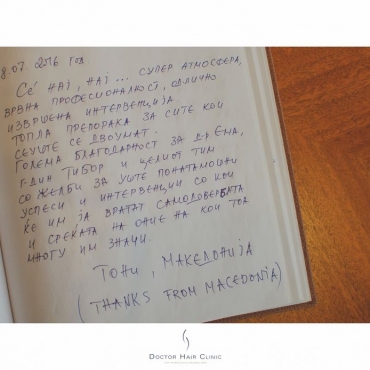 8.07 2016 год
Се' нај, нај ... супер атмосфера,
врвна професионалност, одлично
извршена интервенција
топла препорака за сите кои
сеуште се двоумат.
Голема благодарност за д-р Ема,
г-дин Тибор и целиот тим
со желби за уште понатамошни
успеси и интервенции со кои
ќе им ја вратат самодовербата
и среќата на оние на кои тоа
многу им значи.
Тони, Македонија
(THANKS FROM MACEDONIA)
DOCTOR HAIR CLINIC